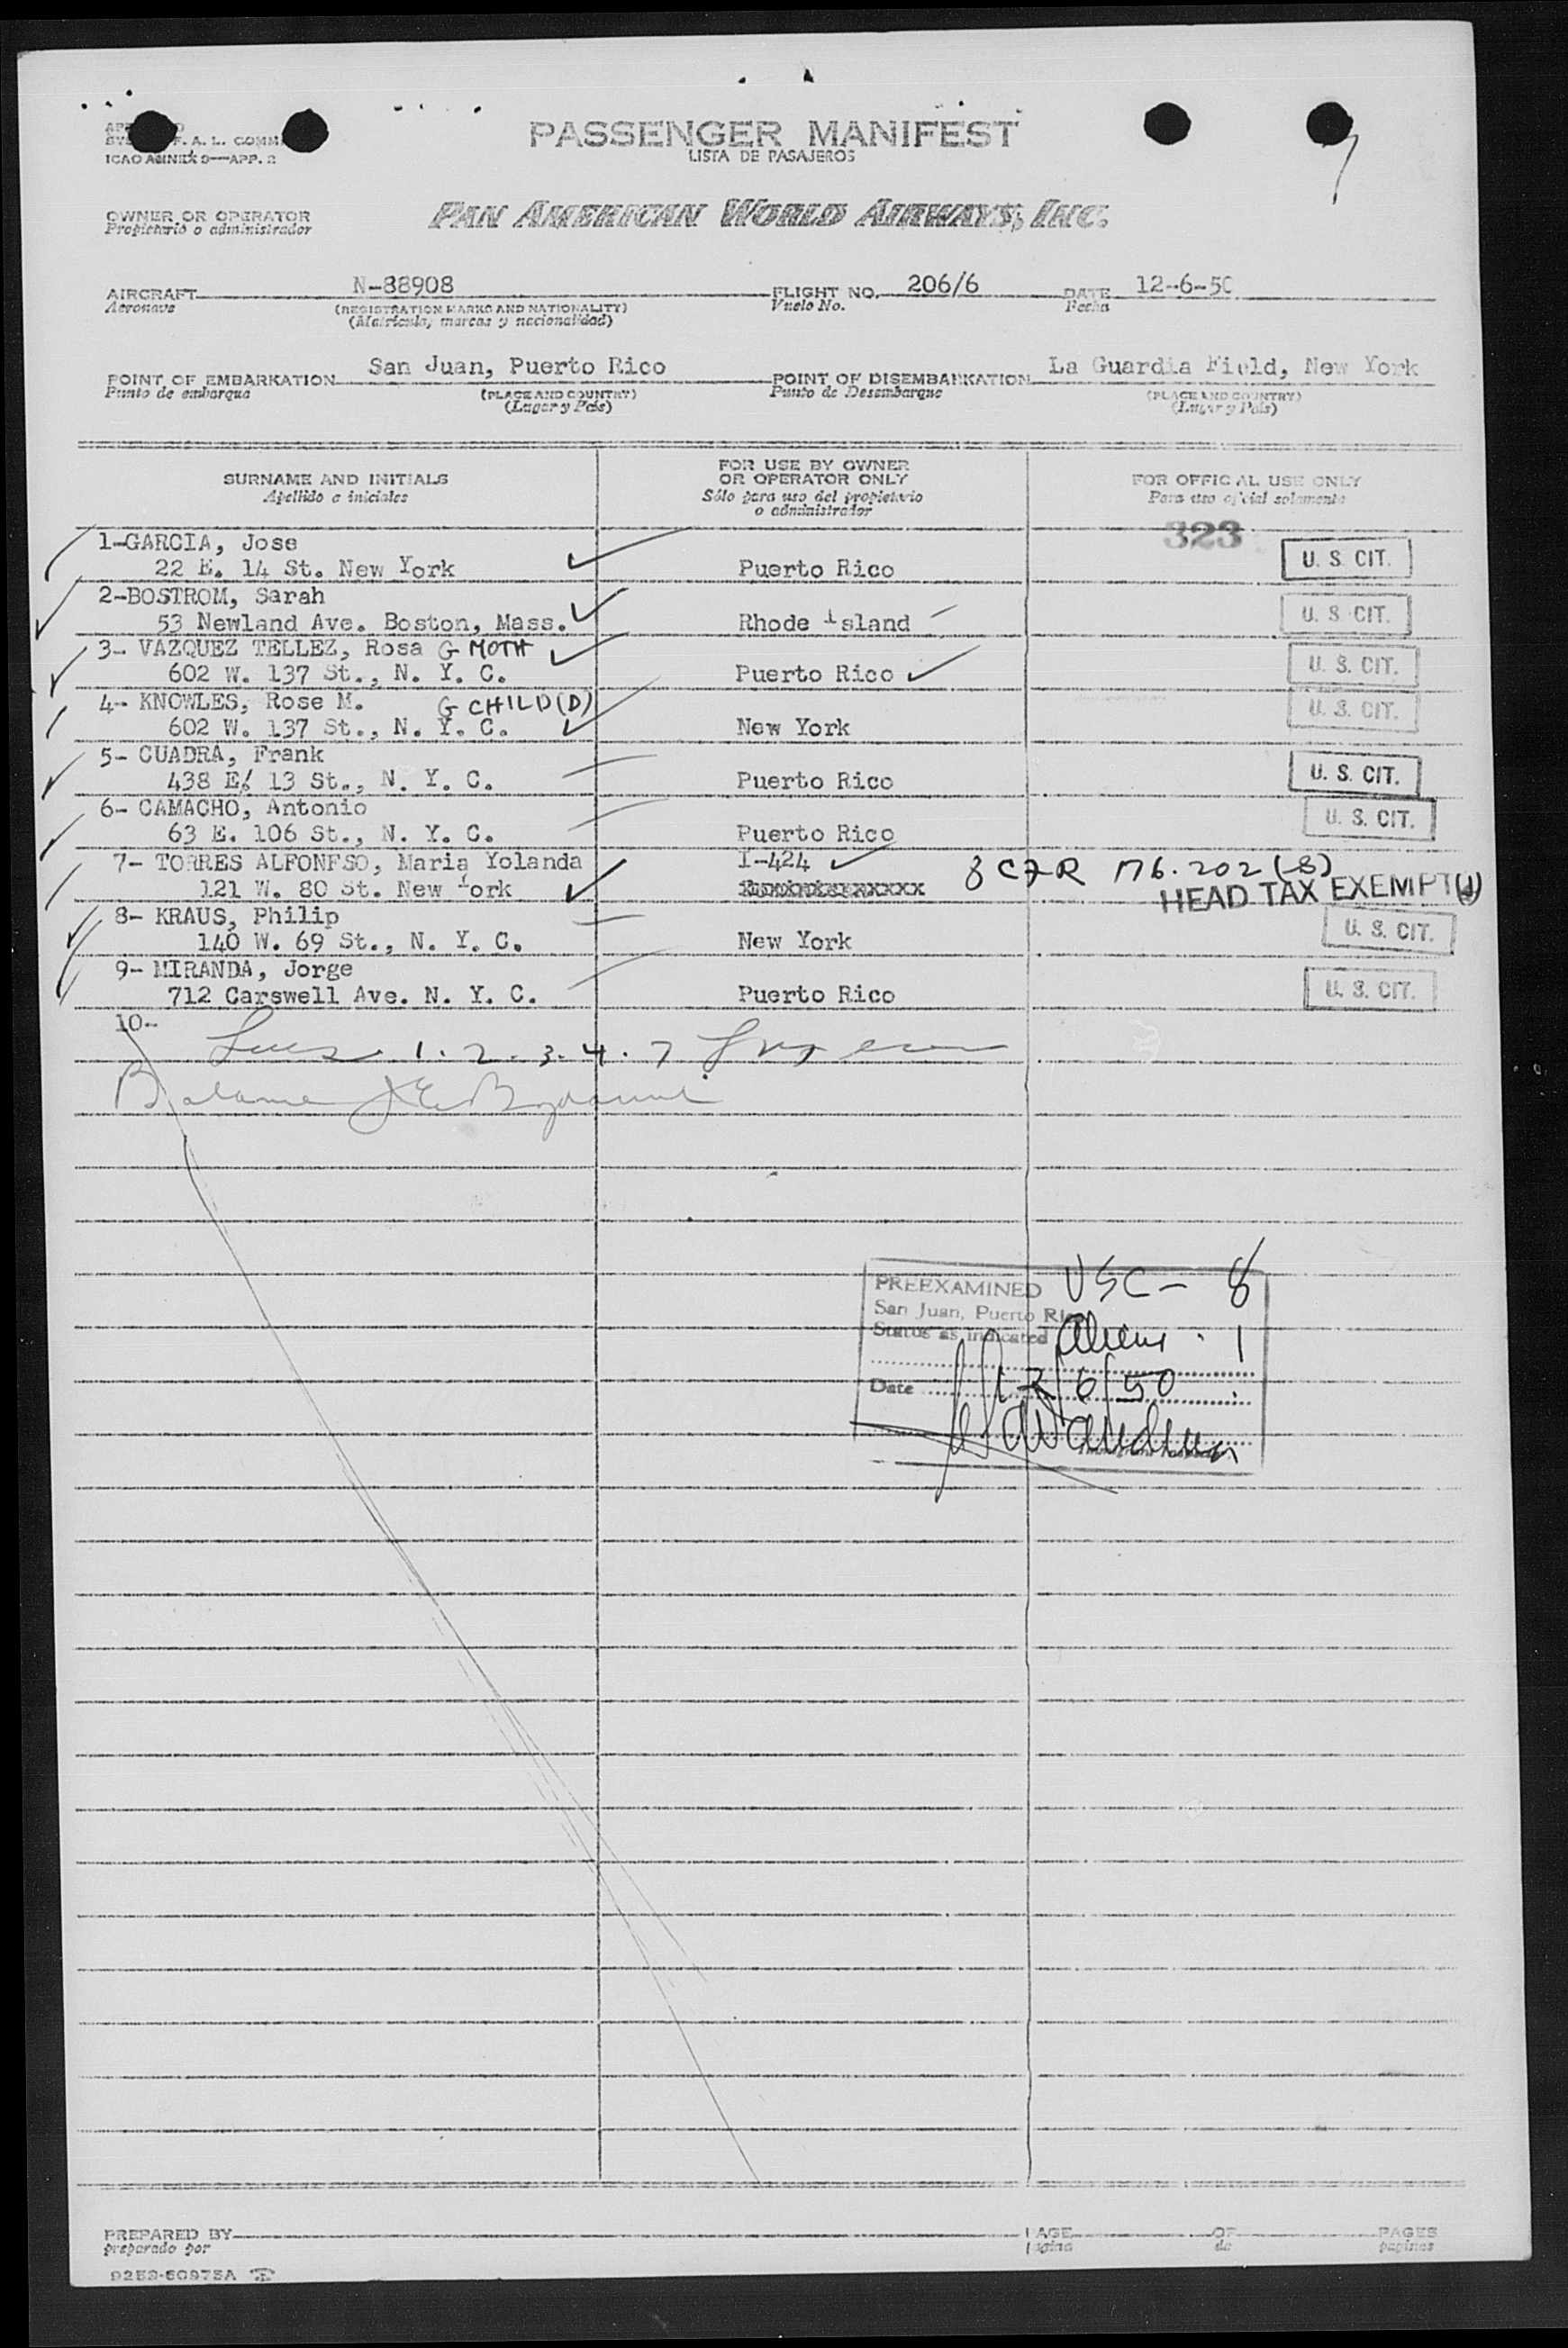 PASSENGER MANIFEST
LISTA DE PASAJEROS
F. A. L. COMM
ICAO ANNEX 9—APP. 2
OWNER OR OPERATOR
Propietario o administrador
PAN AMERICAN WORLD AIRWAYS, INC.
AIRCRAFT N-88908 FLIGHT NO. 206/6 DATE 12-6-50
Aeronave (REGISTRATION MARKS AND NATIONALITY) Vuelo No. Fecha
(Matrícula, marcas y nacionalidad)
POINT OF EMBARKATION San Juan, Puerto Rico POINT OF DISEMBARKATION La Guardia Field, New York
Punto de embarque (PLACE AND COUNTRY) Punto de Desembarque (PLACE AND COUNTRY)
(Lugar y País) (Lugar y País)
SURNAME AND INITIALS FOR USE BY OWNER OR OPERATOR ONLY FOR OFFICIAL USE ONLY
Apellido e iniciales Sólo para uso del propietario o administrador Para uso oficial solamente
323
1-GARCIA, Jose
22 E. 14 St. New York Puerto Rico U. S. CIT.
2-BOSTROM, Sarah
53 Newland Ave. Boston, Mass. Rhode Island U. S. CIT.
3- VAZQUEZ TELLEZ, Rosa G MOTH
602 W. 137 St., N. Y. C. Puerto Rico U. S. CIT.
4- KNOWLES, Rose M. G CHILD(D)
602 W. 137 St., N. Y. C. New York U. S. CIT.
5- CUADRA, Frank
438 E/ 13 St., N. Y. C. Puerto Rico U. S. CIT.
6- CAMACHO, Antonio
63 E. 106 St., N. Y. C. Puerto Rico U. S. CIT.
7- TORRES ALFONFSO, Maria Yolanda I-424 8 CFR 176.202(S)
121 W. 80 St. New York HEAD TAX EXEMPT
8- KRAUS, Philip
140 W. 69 St., N. Y. C. New York U. S. CIT.
9- MIRANDA, Jorge
712 Carswell Ave. N. Y. C. Puerto Rico U. S. CIT.
10-
1. 2. 3. 4. 7
PREEXAMINED USC - 8
San Juan, Puerto Rico
Status as indicated Aliens - 1
Date 12/6/50
PREPARED BY PAGE OF PAGES
preparado por página de páginas